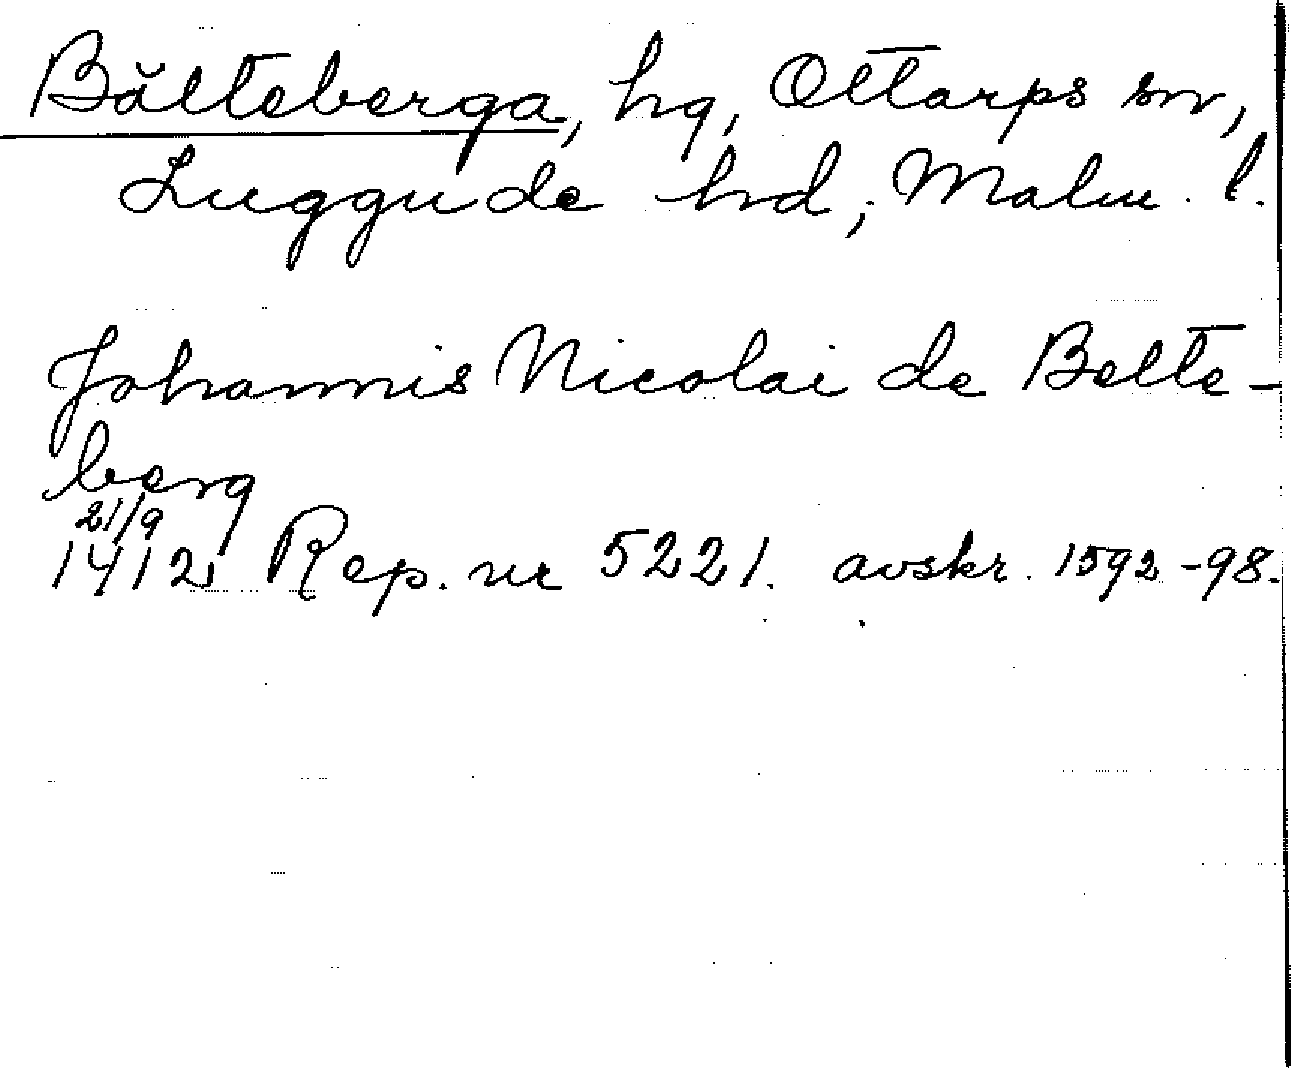 Bälteberga, hg, Ottarps sn,
Luggude hd, Malm. l.
Johannis Nicolai de Belte-
berg
21/9
1412 Rep. nr 5221. avskr. 1592-98.